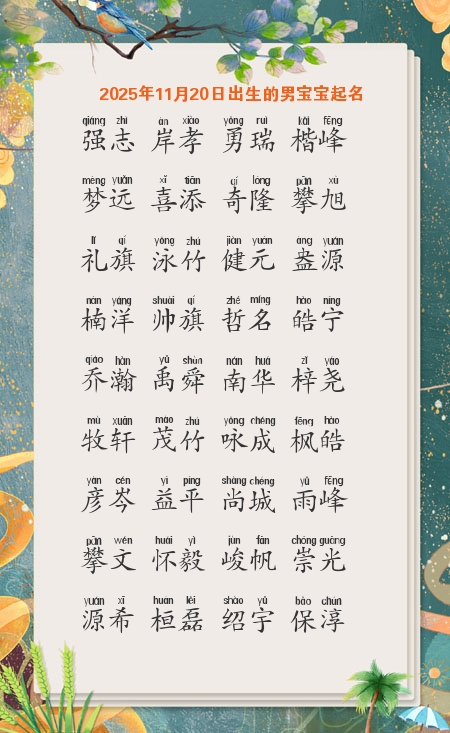 2025年11月20日出生的男宝宝起名
qiáng zhì àn xiào yǒng ruì kǎi fēng
强志 岸孝 勇瑞 楷峰
mèng yuǎn xǐ tiān qí lóng pān xù
梦远 喜添 奇隆 攀旭
lǐ qí yǒng zhú jiàn yuán àng yuán
礼旗 泳竹 健元 盎源
nán yáng shuài qí zhé míng hào níng
楠洋 帅旗 哲名 皓宁
qiáo hàn yǔ shùn nán huá zǐ yáo
乔瀚 禹舜 南华 梓尧
mù xuān mào zhú yǒng chéng fēng hào
牧轩 茂竹 咏成 枫皓
yàn cén yì píng shàng chéng yǔ fēng
彦岑 益平 尚城 雨峰
pān wén huái yì jùn fān chóng guāng
攀文 怀毅 峻帆 崇光
yuán xī huán lěi shào yǔ bǎo chún
源希 桓磊 绍宇 保淳